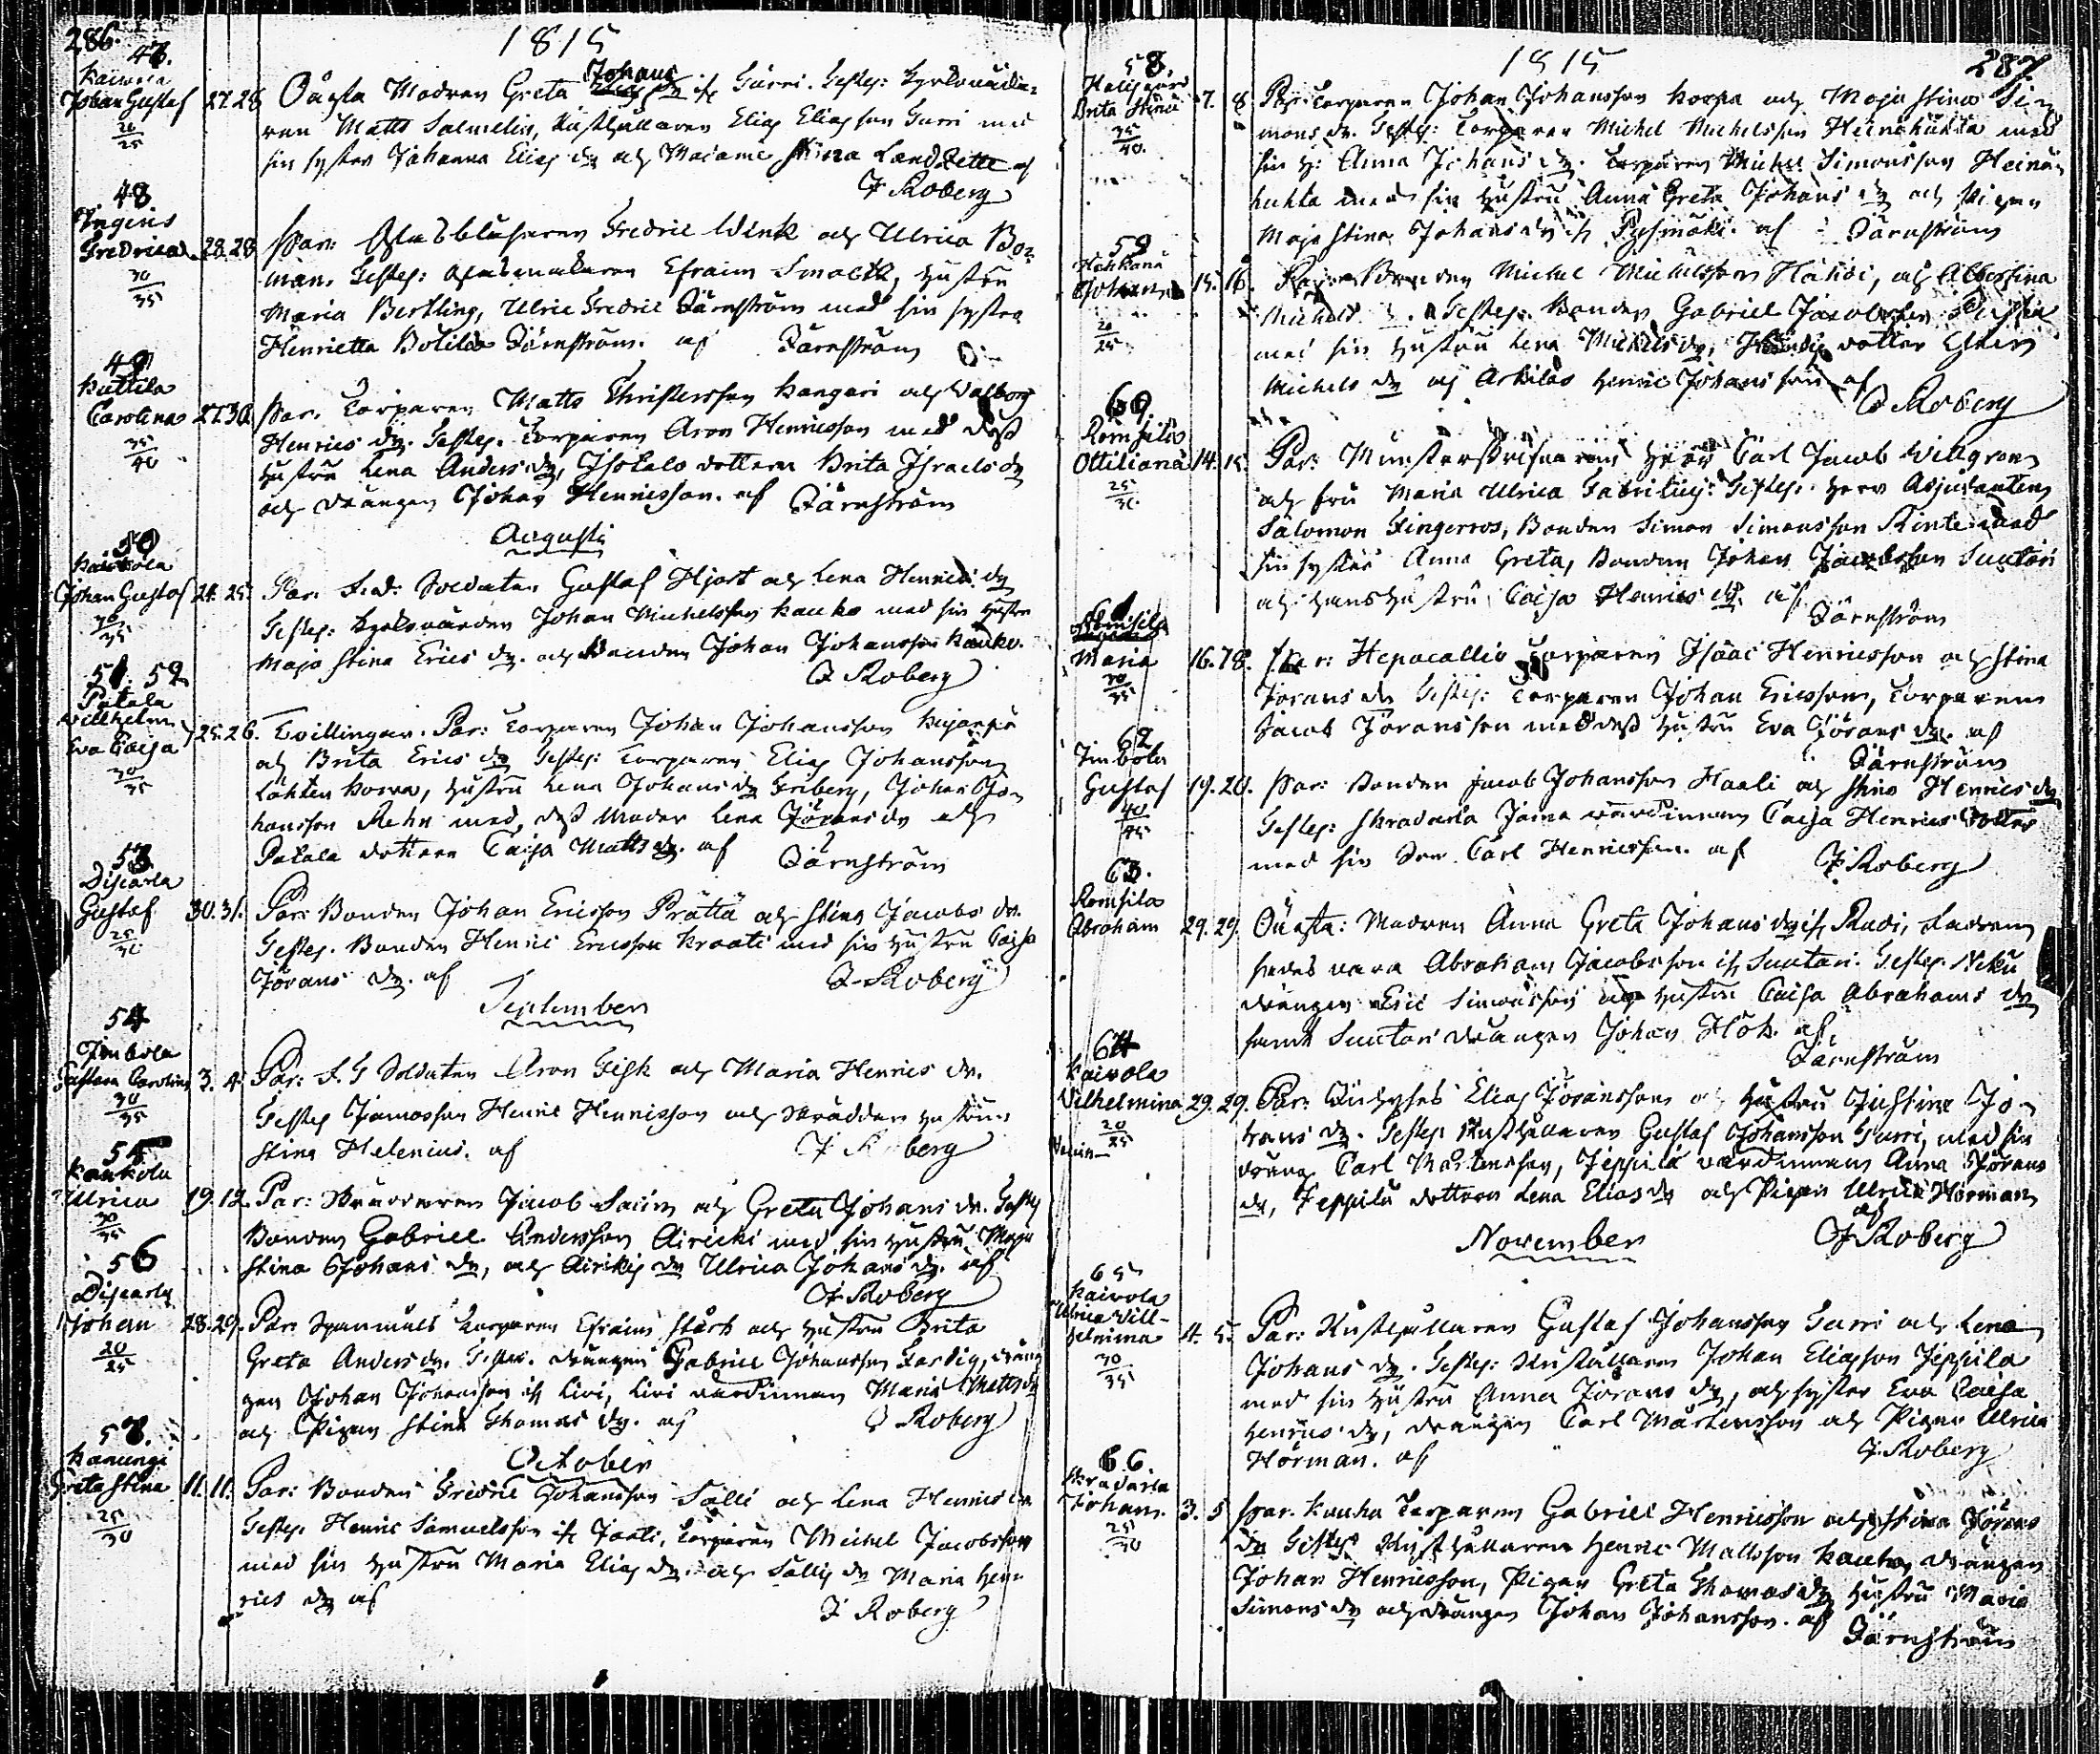 286.
1815
47.
Kaivola
Johan Gustaf 27. 28
20/25
Oägta Modren Greta Johans dr ifr Gurri. Testes: Kyrkovärdin-
nan Matts Salmelin, Rusthållaren Elias Eliasson Gurri med
sin syster Johanna Elias dr och Madame Stina Landzette af
J Roberg
48
Tingeris
Fredrica 28. 28
30/35
Par: Glasblåsaren Fredric Wink och Ulrica Bo-
man. Testes: Glasmakaren Efraim Smaltk, hustru
Maria Bertling, Ulric Fredric Tärnström med sin syster
Henrietta Botilda Tärnström. af Tärnström
49
Kuttila
Carolina 27. 30.
35/40
Par. Torparen Matts Christersson Kangari och Valborg
Henrics dr. Testes. Torparen Aron Henricsson med dess
hustru Lena Anders dr, Isotalo dottern Brita Israels dr
och drängen Johan Henricsson. af Tärnström
Augusti
50
Kaivola
Johan Gustaf 24. 25.
30/35
Par. F.d. Soldaten Gustaf Hjort och Lena Henrics dr
Testes: Kyrkovärden Johan Michelsson Kauko med sin hustru
Maja Stina Erics dr. och Bonden Johan Johansson Kauko.
J Roberg
51. 52
Patala
Willhelm
Eva Caisa 25. 26.
30/35
Tvillingar. Par: Torparen Johan Johansson Kujanpä
och Brita Erics dr Testes: Torparen Elias Johansson
Lähten Korva, hustru Lena Johans dr Friberg, Johan Jo-
hansson Rehn med, dess Moder Lena Jörans dr och
Patala dottern Caisa Matts dr. af Tärnström
53
Discarla
Gustaf 30. 31.
25/30
Par: Bonden Johan Ericsson Prättä och Stina Jacobs dr.
Testes. Bonden Henric Ericsson Kraati med sin hustru Caisa
Jörans dr. af J Roberg
September
54
Jimbola
Gustava Carolina 3. 4.
30/35
Par: F. G Soldaten Aron Fisk och Maria Henrics dr.
Testes Henric Henricsson och Skräddare hustrun
Stina Helenius. af J Roberg
55
Kaukola
Ulrica 19. 19.
30/35
Par: Skräddaren Jacob Salin och Greta Johans dr. Testes
Bonden Gabriel Andersson Airicki med sin hustru Maja
Stina Johans dr, och Airikis dr Ulrica Johans dr. af
J Roberg
56
Discarla
Johan 28. 29.
20/25
Par: Torparen Efraim Stark och hustru Brita
Greta Anders dr. Testes. drängen Gabriel Johansson Fardig, drän-
gen Johan Johansson ifr Livi, Livi värdinnan Maria Matts dr
och Pigan Stina Thomas dr. af J Roberg
October
57.
Kanungi
Greta Stina 11. 11.
25/30
Par: Bonden Fredric Johansson Salli och Lena Henrics dr
Testes. Henric Samuelsson ifr Jaati, Torparen Michel Jacobsson
med sin hustru Maria Elias dr och Sallis dr Maria Hen-
rics dr af
J Roberg
1815
287.
58.
Haijaard
Brita Stina 7. 8
35/40.
Par: Torparen Johan Johansson Korpa och Maja Stina Si-
mons dr. Testes: Torparen Michel Michelsson Heinähuhta med
sin h: Anna Johans dr. Torparen Michel Simonsson Heinä-
huhta med sin hustru Anna Greta Johans dr och Pigan
Maja Stina Johans dr ifr Pysmäki. af Tärnström
59
Johan 15. 16.
20/25
Bonden Michel Michelsson Hähdi, och Albertina
Michels Testes. Bonden Gabriel Jacobsson
med sin hustru Lena Michels dr, dotter
Michels dr och Arkilas Henric Johansson af
J Roberg
60
Remsilä
Ottiliana 14. 15.
25/30.
Par: Munsterskrifvaren Herr Carl Jacob Willgren
och fru Maria Ulrica Testes. Herr Adjutanten
Salomon Fingerroos, Bonden Simon Simonsson Rinte med
sin syster Anna Greta, Bonden Johan Jacobsson Suutari
och hans hustru Caisa Henrics dr. af
Tärnström
61
Remsilä
Maria 16. 18.
30/35
Par: Hepocallio Torparen Isaac Henricsson och Stina
Jörans dr Testes: Torparen Johan Ericsson, Torparen
Jacob Jöransson med dess hustru Eva Jörans dr. af
Tärnström
62
Jimbola
Gustaf 19. 20.
40/45
Par: Bonden Jacob Johansson Haali och Stina Henrics dr
Testes: Skradarla Jaina värdinnan Caisa Henrics dotter
med sin Son Carl Henricsson. af J Roberg
63.
Remsilä
Abraham 29. 29.
Oägta: Modren Anna Greta Johans dr ifr Rudi, Fadren
sades vara Abraham Jacobsson ifr Suutari. Testes.
drängen Eric Simonsson och hustru Caisa Abrahams dr
samt Suutari drängen Johan Höök. af
Tärnström
64
Kaivola
Vilhelmina 29. 29.
20/25
Par: Elias Jöransson och hustru Justina Jo-
hans dr. Testes Rusthållaren Gustaf Johansson Gurri, med sin
dräng Carl Mårtensson, Jeppilä värdinnan Anna Jörans
dr, Jeppilä dottern Lena Elias dr och Pigan Ulrica Hörman
af
J Roberg
November
65
Kaivola
Ulrica Vill-
helmina 4. 5.
30/35
Par: Rusthållaren Gustaf Johansson Gurri och Lena
Johans dr. Testes: Rusthållaren Johan Eliasson Jeppilä
med sin hustru Anna Jörans dr, och syster Eva Caisa
Henrics dr, drängen Carl Mårtensson och Pigan Ulrica
Hörman. af J. Roberg
66.
Skradarla
Johan. 3. 5
25/30
Par. Kauha Torparen Gabriel Henricsson och Stina Jörans
dr Testes Rusthållaren Henric Mattsson Kauha, drängen
Johan Henricsson, Pigan Greta Thomas dr, hustru Maria
Simons dr och drängen Johan Johansson. af
Tärnström